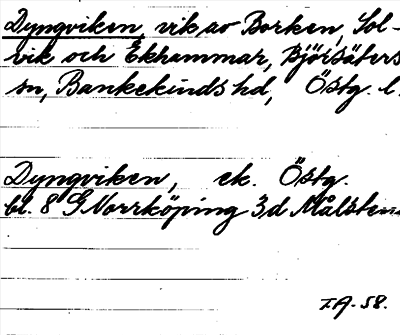 Dyngviken, vik av Borken, Sol-
vik och Ekhammar, Björsäters
sn, Bankekinds hd, Östg. l.
Dyngviken, ek. Östg.
bl. 8 G Norrköping 3d Målsten
I.A. 58.